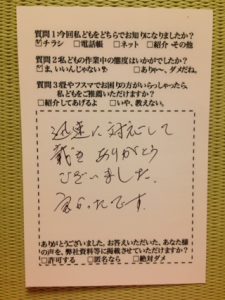 質問1今回私どもをどちらでお知りになりましたか?
☑チラシ □電話帳 □ネット □紹介 その他
質問2私どもの作業中の態度はいかがでしたか?
☑ま、いいんじゃない □ありゃ〜、ダメだね。
質問3畳やフスマでお困りの方がいらっしゃったら、
私どもをご推薦いただけますか?
□紹介してあげるよ □いや、教えない。
迅速に対応して
戴き ありがとう
ございました。
良かったです
ありがとうございました。お答えいただいた、あなた様
の声を、弊社資料等に掲載させていただけますか?
□許可する □匿名なら □絶対ダメ